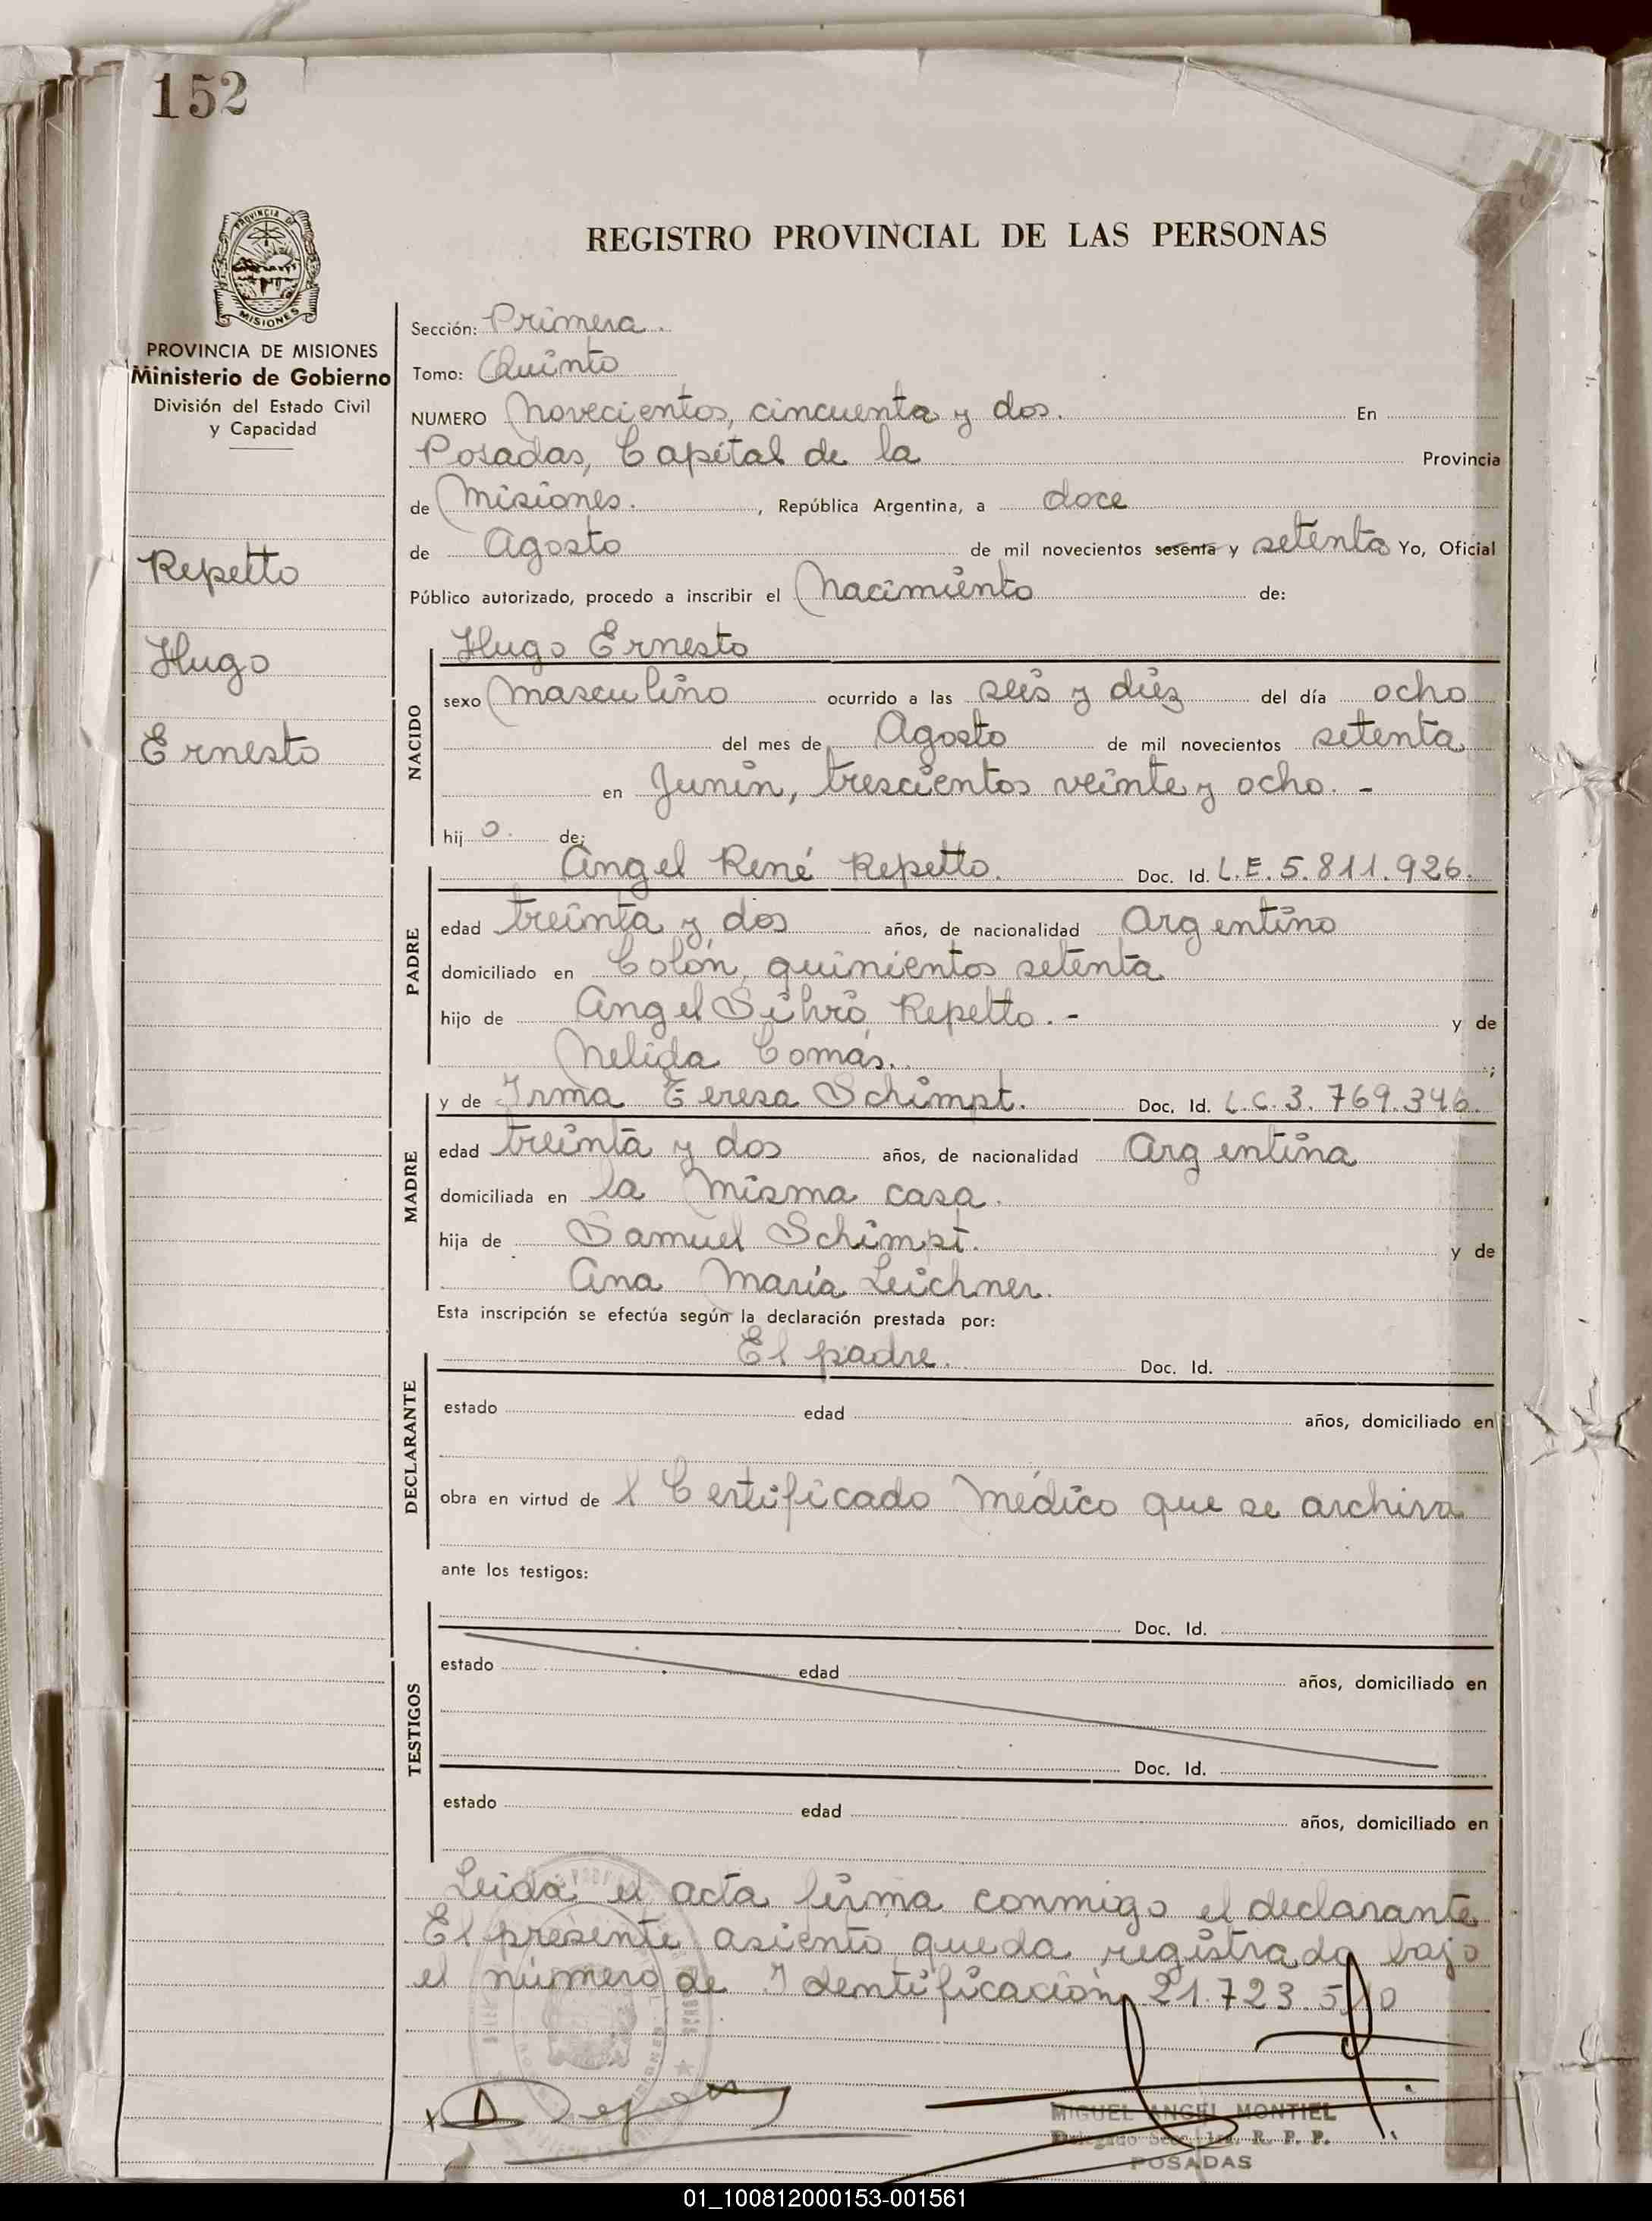 152
PROVINCIA DE
MISIONES
PROVINCIA DE MISIONES
Ministerio de Gobierno
División del Estado Civil
y Capacidad
Repetto
Hugo
Ernesto
REGISTRO PROVINCIAL DE LAS PERSONAS
Sección: Primera.
Tomo: Quinto
NUMERO Novecientos, cincuenta y dos. En
Posadas, Capital de la Provincia
de Misiones. , República Argentina, a doce
de Agosto de mil novecientos sesenta y setenta Yo, Oficial
Público autorizado, procedo a inscribir el Nacimiento de:
NACIDO
Hugo Ernesto
sexo masculino ocurrido a las seis y diez del día ocho
del mes de Agosto de mil novecientos setenta
en Junín, trescientos veinte y ocho. -
hij o. de:
PADRE
Angel René Repetto. Doc. Id. L.E. 5.811.926.
edad treinta y dos años, de nacionalidad Argentino
domiciliado en Colón, quinientos setenta
hijo de Angel Repetto. - y de
Nelida Comás. ;
MADRE
y de Irma Teresa Schimpt. Doc. Id. L.C. 3.769.346.
edad treinta y dos años, de nacionalidad Argentina
domiciliada en la misma casa.
hija de Samuel Schimpt. y de
Ana María Leichner.
Esta inscripción se efectúa según la declaración prestada por:
DECLARANTE
El padre. Doc. Id.
estado edad años, domiciliado en
obra en virtud de l Certificado Médico que se archiva
ante los testigos:
TESTIGOS
Doc. Id.
estado edad años, domiciliado en
Doc. Id.
estado edad años, domiciliado en
Leida el acta firma conmigo el declarante
El presente asiento queda registrado bajo
el número de Identificación 21.723.
MIGUEL ANGEL MONTIEL
Delegado R. P. P.
POSADAS
01_100812000153-001561